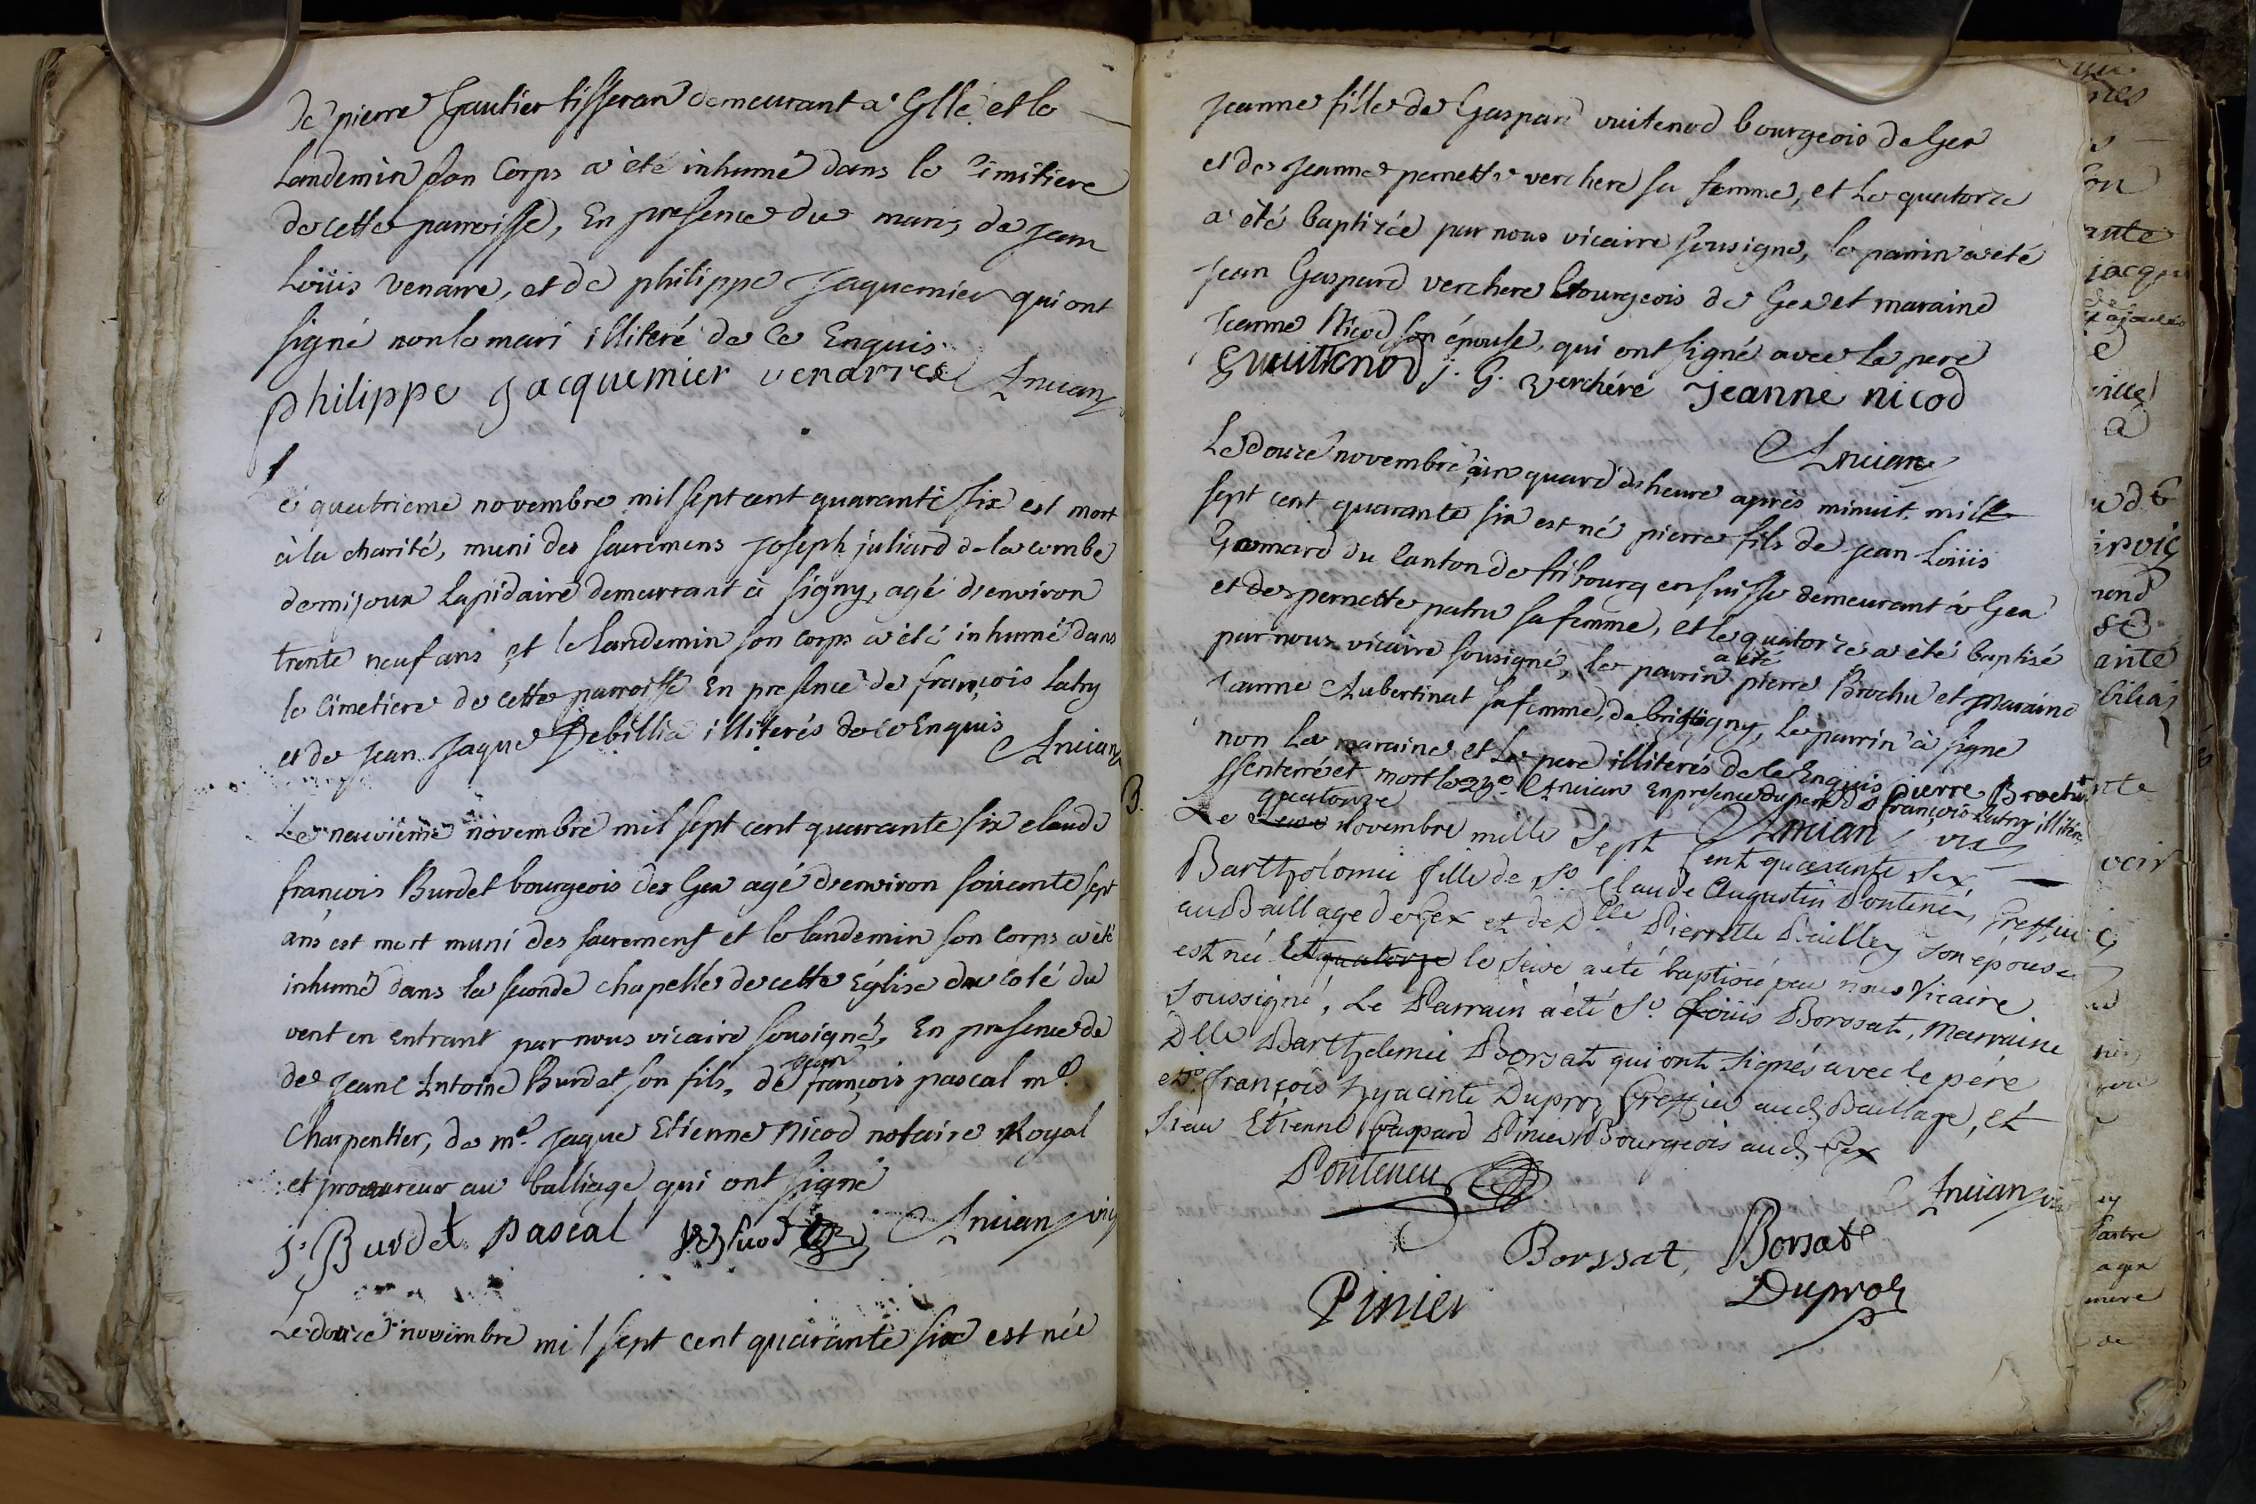 de pierre Gautier tisseran demeurant a Glle et le
landemin son Corps a été inhumé dans le cimitiere
de cette parroisse, En presence du mari, de jean
Loüis Venarre, et de philippe Jaquemier qui ont
signé non le mari illiteré de ce Enquis
philippe Jacquemier venarre Ancian
Le quatrieme novembre mil sept cent quarante six est mort
à la charité, muni des sacremens joseph juliard de la combe
demijoux lapidaire demeurrant à signy, agé d'environ
trente neuf ans et le landemin son corps a été inhumé dans
le Cimetiere de cette parroisse En presence de françois Latry
et de jean jaque Debillia illiterés de ce Enquis
Ancian
Le neuvieme novembre mil sept cent quarante six claude
françois Burdet bourgeois de Gex agé d'environ soixante sept
ans est mort muni des sacremens et le landemin son corps a été
inhumé dans la seconde chapelle de cette Église du coté du
vent en entrant par nous vicaire sousigné, En presence de
de jean Antoine Burdet son fils, de jean françois pascal me.
Charpentier, de me. jaque Etienne Nicod notaire Royal
et procureur au balliage qui ont signé
j. Burdet pascal Ancian vic
Le douze novembre mil sept cent quarante six est née
jeanne fille de Gaspard vuitenod bourgeois de Gex
et de jeanne pernette verchere sa femme, et le quatorze
a été baptizée par nous vicaire sousigné, le parrin a été
jean Gaspard verchere bourgeois de Gex et maraine
jeanne Nicod son épouse, qui ont signé avec le pere
G vuittenod j. G. verchére jeanne nicod
Ancian
Le douze novembre à un quard d'heure après minuit mille
sept cent quarante six est né pierre fils de jean Loüis
Gromard du canton de fribourg en suisse demeurant à Gex
et de pernette patru sa femme, et le quatorze a été baptisé
par nous vicaire sousigné, le parrin a été pierre Brochu et maraine
jeanne Aubertinat sa femme, de brigigny, le parrin à signé
non la maraine et le pere illiterés de ce Enquis pierre Brochu
enterré et mort le 29e. Ancian En presence du pere de françois Latry illiteré
Ancian vic
Le quatorze Novembre mille Sept Cent quarante Six
Bartholomie fille de Sr. Claude Augustin Pontenier, Greffier
au Baillage de Gex et de Dlle Pierrette Peilley son epouse
est née et quatorze le seise a été baptisée par nous Vicaire
soussigné, Le Parrain à été Sr. Loüis Borssat, Marraine
Dlle Barthelemie Borsat qui ont signés avec le pére
et Sr. françois hyacinte Duproz Greffier aud. Baillage, et
Sieur Etienne Gaspard Pinier Bourgeois aud. Gex
Ancian vic
Borssat Borsat
Pinier Duproz